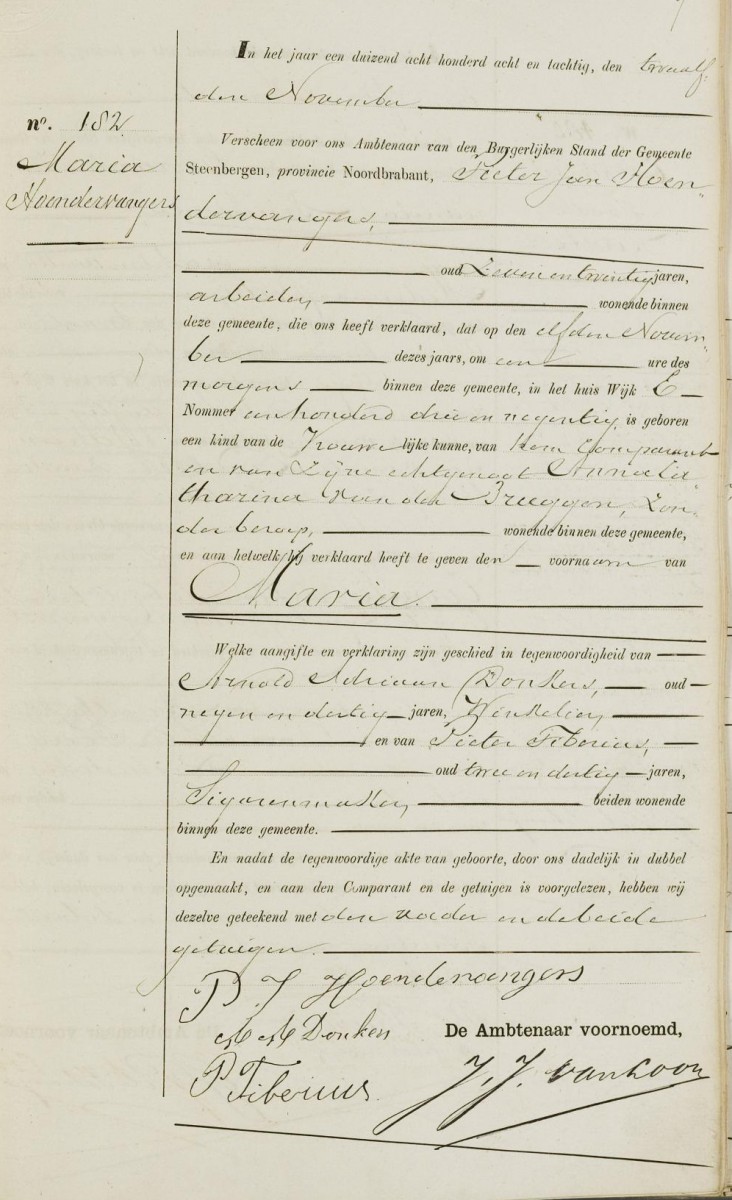 nº. 182.
Maria
Hoendervangers
In het jaar een duizend acht honderd acht en tachtig, den twaalf
den November
Verscheen voor ons Ambtenaar van den Burgerlijken Stand der Gemeente
Steenbergen, provincie Noordbrabant, Pieter Jan Hoen„
dervangers,
oud Zeven en twintig jaren,
arbeider, wonende binnen
deze gemeente, die ons heeft verklaard, dat op den elfden Novem„
ber dezes jaars, om een ure des
morgens binnen deze gemeente, in het huis Wijk E
Nommer een honderd drie en negentig is geboren
een kind van de Vrouwelijke kunne, van hem Comparant
en van Zijne echtgenoot Anna Ca„
tharina van der Breggen, Zon„
der beroep, wonende binnen deze gemeente,
en aan hetwelk hij verklaard heeft te geven den voornaam van
Maria.
Welke aangifte en verklaring zijn geschied in tegenwoordigheid van
Arnold Adriaan Donkers, oud
negen en dertig jaren, Winkelier,
en van Pieter Tiberius,
oud twee en dertig jaren,
Sigarenmaker, beiden wonende
binnen deze gemeente.
En nadat de tegenwoordige akte van geboorte, door ons dadelijk in dubbel
opgemaakt, en aan den Comparant en de getuigen is voorgelezen, hebben wij
dezelve geteekend met den vader en de beide
getuigen.
P J Hoendervangers
Donkers
P Tiberius.
De Ambtenaar voornoemd,
J. J. van Loon